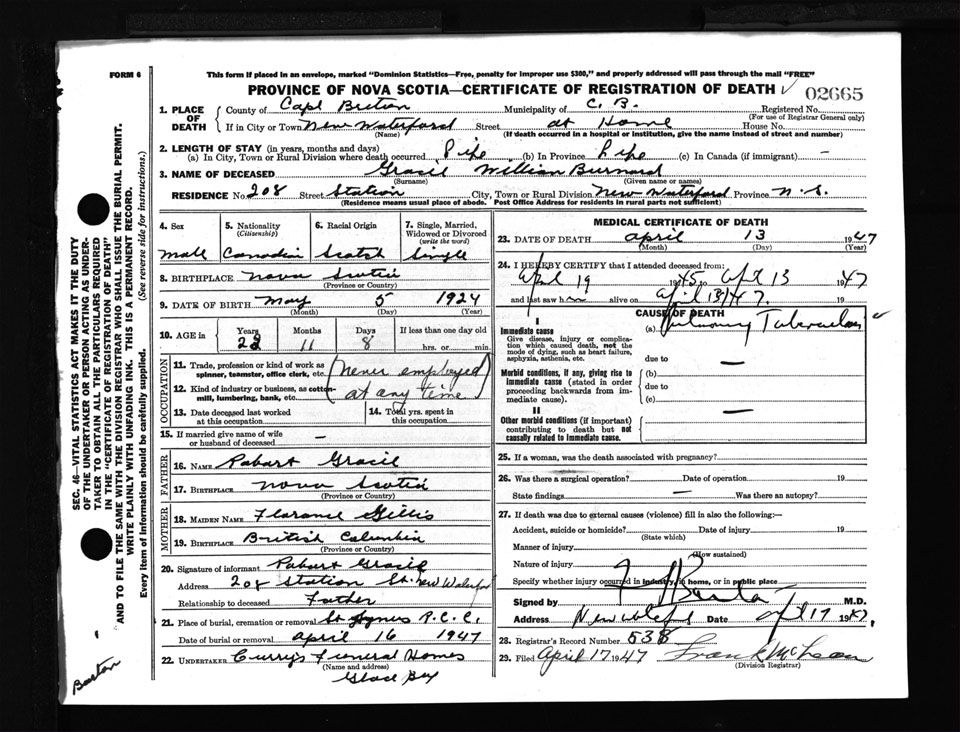 FORM 6
This form if placed in an envelope, marked "Dominion Statistics—Free, penalty for improper use $300," and properly addressed will pass through the mail "FREE"
PROVINCE OF NOVA SCOTIA—CERTIFICATE OF REGISTRATION OF DEATH 02665
1. PLACE OF DEATH County of Cape Breton Municipality of C. B. Registered No.
(For use of Registrar General only)
If in City or Town New Waterford Street at Home House No.
(Name) (If death occurred in a hospital or institution, give the name instead of street and number)
2. LENGTH OF STAY (in years, months and days)
(a) In City, Town or Rural Division where death occurred Life (b) In Province Life (c) In Canada (if immigrant) —
3. NAME OF DECEASED Gracie William Burnard
(Surname) (Given name or names)
RESIDENCE No. 208 Street Station City, Town or Rural Division New Waterford Province N. S.
(Residence means usual place of abode. Post Office Address for residents in rural parts not sufficient)
4. Sex 5. Nationality (Citizenship) 6. Racial Origin 7. Single, Married, Widowed or Divorced (write the word)
Male Canadian Scotch Single
8. BIRTHPLACE Nova Scotia
(Province or Country)
9. DATE OF BIRTH May 5 1924
(Month) (Day) (Year)
10. AGE in Years Months Days If less than one day old
22 11 8 hrs. or min.
OCCUPATION
11. Trade, profession or kind of work as spinner, teamster, office clerk, etc. (Never employed
12. Kind of industry or business, as cotton-mill, lumbering, bank, etc. at any time)
13. Date deceased last worked at this occupation 14. Total yrs. spent in this occupation
15. If married give name of wife or husband of deceased —
FATHER
16. NAME Robert Gracie
17. BIRTHPLACE Nova Scotia
(Province or Country)
MOTHER
18. MAIDEN NAME Florance Gillis
19. BIRTHPLACE British Columbia
(Province or Country)
20. Signature of informant Robert Gracie
Address 208 Station St. New Waterford
Relationship to deceased Father
21. Place of burial, cremation or removal St Agnes R.C.C.
Date of burial or removal April 16 1947
22. UNDERTAKER Curry's Funeral Homes
(Name and address)
Glace Bay
MEDICAL CERTIFICATE OF DEATH
23. DATE OF DEATH April 13 1947
(Month) (Day) (Year)
24. I HEREBY CERTIFY that I attended deceased from:
April 19 1945 to April 13 1947
and last saw him alive on April 13/47. 19
CAUSE OF DEATH
I
Immediate cause (a) Pulmonary Tuberculosis
Give disease, injury or complication which caused death, not the mode of dying, such as heart failure, asphyxia, asthenia, etc.
due to —
Morbid conditions, if any, giving rise to immediate cause (stated in order proceeding backwards from immediate cause).
(b)
due to
(c)
II
Other morbid conditions (if important) contributing to death but not causally related to immediate cause. —
25. If a woman, was the death associated with pregnancy?
26. Was there a surgical operation? Date of operation 19
State findings — Was there an autopsy?
27. If death was due to external causes (violence) fill in also the following:—
Accident, suicide or homicide? Date of injury 19
(State which)
Manner of injury
(How sustained)
Nature of injury
Specify whether injury occurred in industry, in home, or in public place
Signed by M.D.
Address New Waterford Date April 17 1947
28. Registrar's Record Number 538
29. Filed April 17 1947 Frank McLean
(Division Registrar)
SEC. 46—VITAL STATISTICS ACT MAKES IT THE DUTY
OF THE UNDERTAKER OR PERSON ACTING AS UNDERTAKER
TO OBTAIN ALL THE PARTICULARS REQUIRED
IN THE "CERTIFICATE OF REGISTRATION OF DEATH"
AND TO FILE THE SAME WITH THE DIVISION REGISTRAR WHO SHALL ISSUE THE BURIAL PERMIT.
WRITE PLAINLY WITH UNFADING INK. THIS IS A PERMANENT RECORD.
Every item of information should be carefully supplied. (See reverse side for instructions.)
Barton